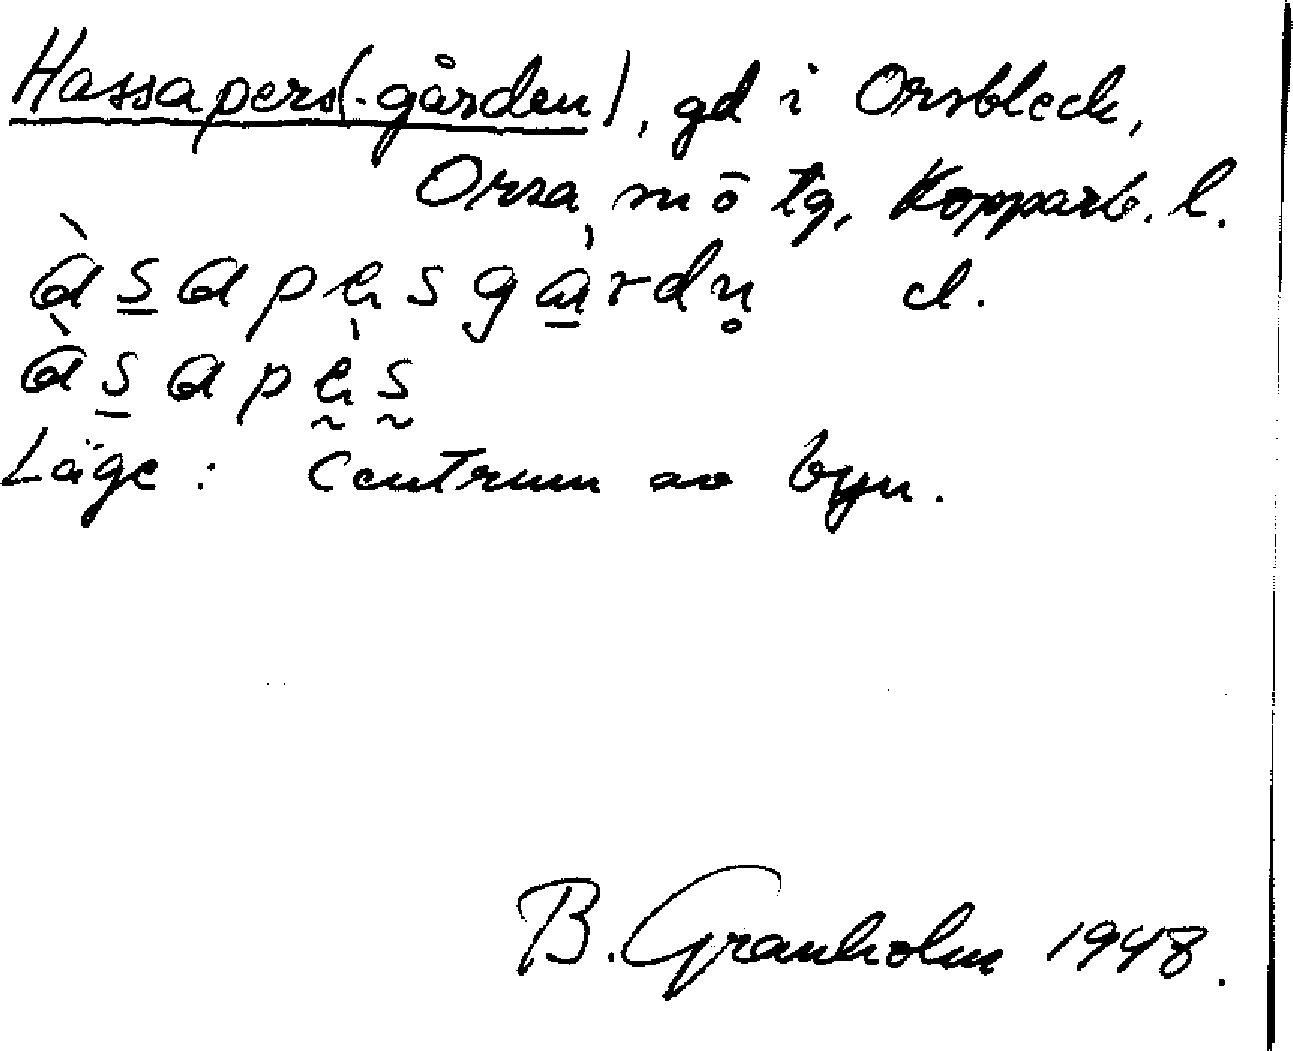 Hassapers(-gården), gd i Orsbleck,
Orsa sn ō tg, Kopparb. l.
ɑ̀s̲ɑpesgɑ̲̀rdn̥ d.
ɑ̀s̲ɑpḛ̀s̰
Läge: Centrum av byn.
B. Granholm 1948.